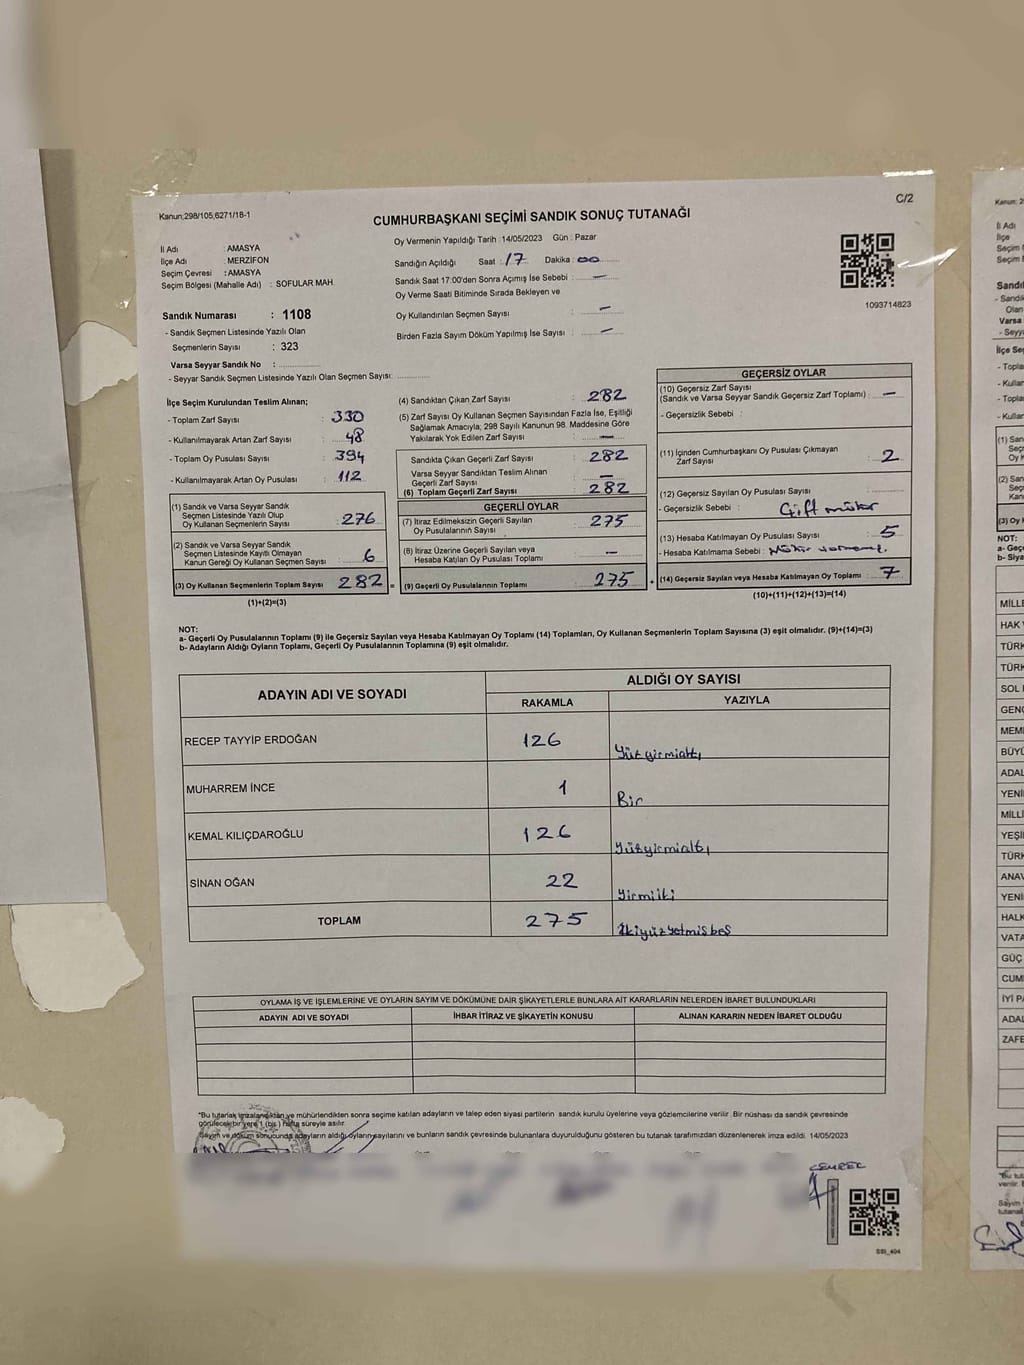 C/2
Kanun;298/105,6271/18-1
CUMHURBAŞKANI SEÇİMİ SANDIK SONUÇ TUTANAĞI
İl Adı : AMASYA
İlçe Adı : MERZİFON
Seçim Çevresi : AMASYA
Seçim Bölgesi (Mahalle Adı) : SOFULAR MAH.
Sandık Numarası : 1108
- Sandık Seçmen Listesinde Yazılı Olan
Seçmenlerin Sayısı : 323
Varsa Seyyar Sandık No :
- Seyyar Sandık Seçmen Listesinde Yazılı Olan Seçmen Sayısı:
Oy Vermenin Yapıldığı Tarih : 14/05/2023 Gün : Pazar
Sandığın Açıldığı Saat : 17 Dakika : 00
Sandık Saat 17:00'den Sonra Açımış İse Sebebi : —
Oy Verme Saati Bitiminde Sırada Bekleyen ve
Oy Kullandırılan Seçmen Sayısı : —
Birden Fazla Sayım Döküm Yapılmış İse Sayısı : —
1093714823
İlçe Seçim Kurulundan Teslim Alınan;
- Toplam Zarf Sayısı : 330
- Kullanılmayarak Artan Zarf Sayısı : 48
- Toplam Oy Pusulası Sayısı : 394
- Kullanılmayarak Artan Oy Pusulası : 112
(1) Sandık ve Varsa Seyyar Sandık
Seçmen Listesinde Yazılı Olup
Oy Kullanan Seçmenlerin Sayısı : 276
(2) Sandık ve Varsa Seyyar Sandık
Seçmen Listesinde Kayıtlı Olmayan
Kanun Gereği Oy Kullanan Seçmen Sayısı : 6
(3) Oy Kullanan Seçmenlerin Toplam Sayısı : 282 =
(1)+(2)=(3)
(4) Sandıktan Çıkan Zarf Sayısı : 282
(5) Zarf Sayısı Oy Kullanan Seçmen Sayısından Fazla İse, Eşitliği
Sağlamak Amacıyla; 298 Sayılı Kanunun 98. Maddesine Göre
Yakılarak Yok Edilen Zarf Sayısı : —
Sandıkta Çıkan Geçerli Zarf Sayısı : 282
Varsa Seyyar Sandıktan Teslim Alınan
Geçerli Zarf Sayısı : —
(6) Toplam Geçerli Zarf Sayısı : 282
GEÇERLİ OYLAR
(7) İtiraz Edilmeksizin Geçerli Sayılan
Oy Pusulalarının Sayısı : 275
(8) İtiraz Üzerine Geçerli Sayılan veya
Hesaba Katılan Oy Pusulası Toplamı : —
(9) Geçerli Oy Pusulalarının Toplamı : 275
GEÇERSİZ OYLAR
(10) Geçersiz Zarf Sayısı
(Sandık ve Varsa Seyyar Sandık Geçersiz Zarf Toplamı) : —
- Geçersizlik Sebebi :
(11) İçinden Cumhurbaşkanı Oy Pusulası Çıkmayan
Zarf Sayısı : 2
(12) Geçersiz Sayılan Oy Pusulası Sayısı :
- Geçersizlik Sebebi : Çift mühür
(13) Hesaba Katılmayan Oy Pusulası Sayısı : 5
- Hesaba Katılmama Sebebi : Mühür
(14) Geçersiz Sayılan veya Hesaba Katılmayan Oy Toplamı : 7
(10)+(11)+(12)+(13)=(14)
NOT:
a- Geçerli Oy Pusulalarının Toplamı (9) ile Geçersiz Sayılan veya Hesaba Katılmayan Oy Toplamı (14) Toplamları, Oy Kullanan Seçmenlerin Toplam Sayısına (3) eşit olmalıdır. (9)+(14)=(3)
b- Adayların Aldığı Oyların Toplamı, Geçerli Oy Pusulalarının Toplamına (9) eşit olmalıdır.
ADAYIN ADI VE SOYADI
ALDIĞI OY SAYISI
RAKAMLA YAZIYLA
RECEP TAYYİP ERDOĞAN 126 Yüzyirmialtı
MUHARREM İNCE 1 Bir
KEMAL KILIÇDAROĞLU 126 Yüzyirmialtı
SİNAN OĞAN 22 Yirmiiki
TOPLAM 275 İkiyüzyetmişbeş
OYLAMA İŞ VE İŞLEMLERİNE VE OYLARIN SAYIM VE DÖKÜMÜNE DAİR ŞİKAYETLERLE BUNLARA AİT KARARLARIN NELERDEN İBARET BULUNDUKLARI
ADAYIN ADI VE SOYADI İHBAR İTİRAZ VE ŞİKAYETİN KONUSU ALINAN KARARIN NEDEN İBARET OLDUĞU
*Bu tutanak imzalandıktan ve mühürlendikten sonra seçime katılan adayların ve talep eden siyasi partilerin sandık kurulu üyelerine veya gözlemcilerine verilir. Bir nüshası da sandık çevresinde
görülecek bir yere 1 (bir) hafta süreyle asılır.
Sayım ve döküm sonucunda adayların aldığı oyların sayılarını ve bunların sandık çevresinde bulunanlara duyurulduğunu gösteren bu tutanak tarafımızdan düzenlenerek imza edildi. 14/05/2023
SSI_404
Kanun; 2
İl Adı
İlçe
Seçim
Seçim
Sandı
- Sandı
Olan
Varsa
- Seyy
İlçe Se
- Topla
- Kullar
- Topla
- Kullar
NOT:
a- Geç
b- Siya
MİLLE
HAK
TÜRK
TÜRK
SOL
GENÇ
MEM
BÜYÜ
ADAL
YENİ
MİLLİ
YEŞİ
TÜRK
ANAV
YENİ
HALK
VATA
GÜÇ
CUM
İYİ PA
ADAL
ZAFE